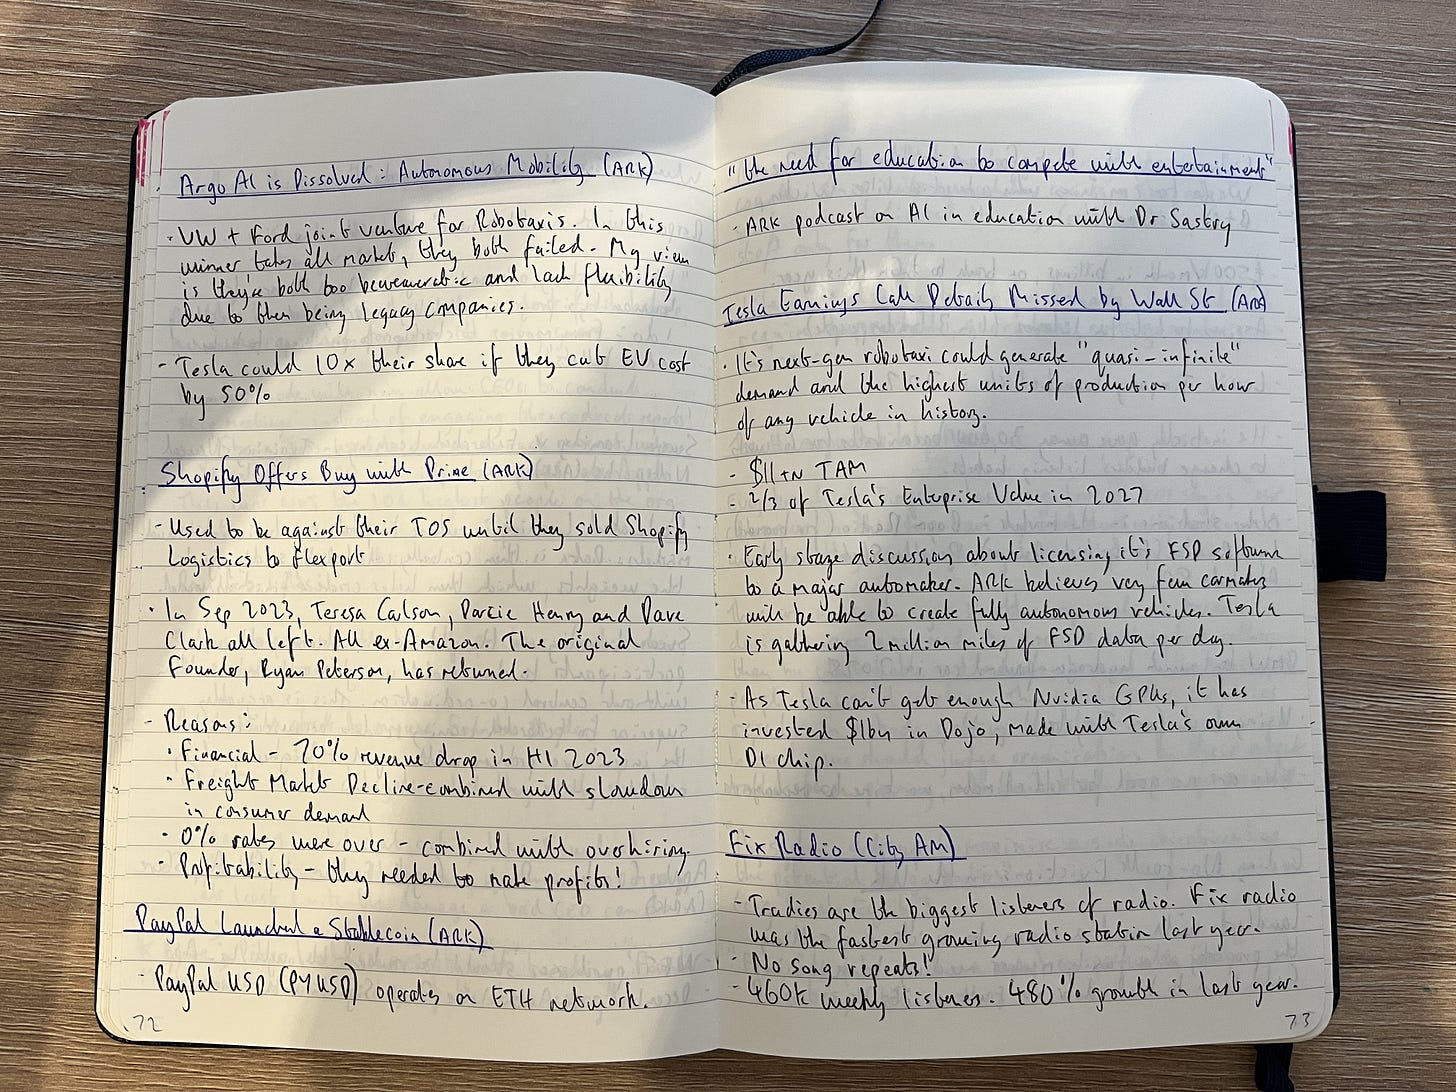 Argo AI is Dissolved : Autonomous Mobility (ARK)
- VW + Ford joint venture for Robotaxis. In this
winner takes all market, they both failed - My view
is they're both too beaureucratic and lack flexibility
due to them being legacy companies.
- Tesla could 10x their share if they cut EV cost
by 50%
Shopify Offers Buy with Prime (ARK)
- Used to be against their TOS until they sold Shopify
Logistics to flexport
- In Sep 2023, Teresa Carlson, Darcie Henry and Dave
Clark all left. All ex-Amazon. The original
Founder, Ryan Peterson, has returned.
- Reasons:
• Financial - 70% revenue drop in H1 2023
• Freight Market Decline-combined with slowdown
in consumer demand
• 0% rates were over - combined with overhiring.
• Profitability - they needed to make profits!
PayPal Launched a Stablecoin (ARK)
- PayPal USD (PYUSD) operates on ETH network.
72
"the need for education to compete with entertainment"
- ARK podcast on AI in education with Dr Sastry
Tesla Earnings Call Details Missed by Wall St (ARK)
- It's next-gen robotaxi could generate "quasi-infinite"
demand and the highest units of production per hour
of any vehicle in history.
- $11trn TAM
- 2/3 of Tesla's Enterprise Value in 2027
- Early stage discussion about licensing it's FSD software
to a major automaker. ARK believes very few carmakers
will be able to create fully autonomous vehicles. Tesla
is gathering 2 million miles of FSD data per day.
- As Tesla can't get enough Nvidia GPUs, it has
invested $1bn in Dojo, made with Tesla's own
D1 chip.
Fix Radio (City AM)
- Tradies are the biggest listeners of radio. Fix radio
was the fastest growing radio station last year.
- No song repeats!
- 460k weekly listeners. 480% growth in last year.
73